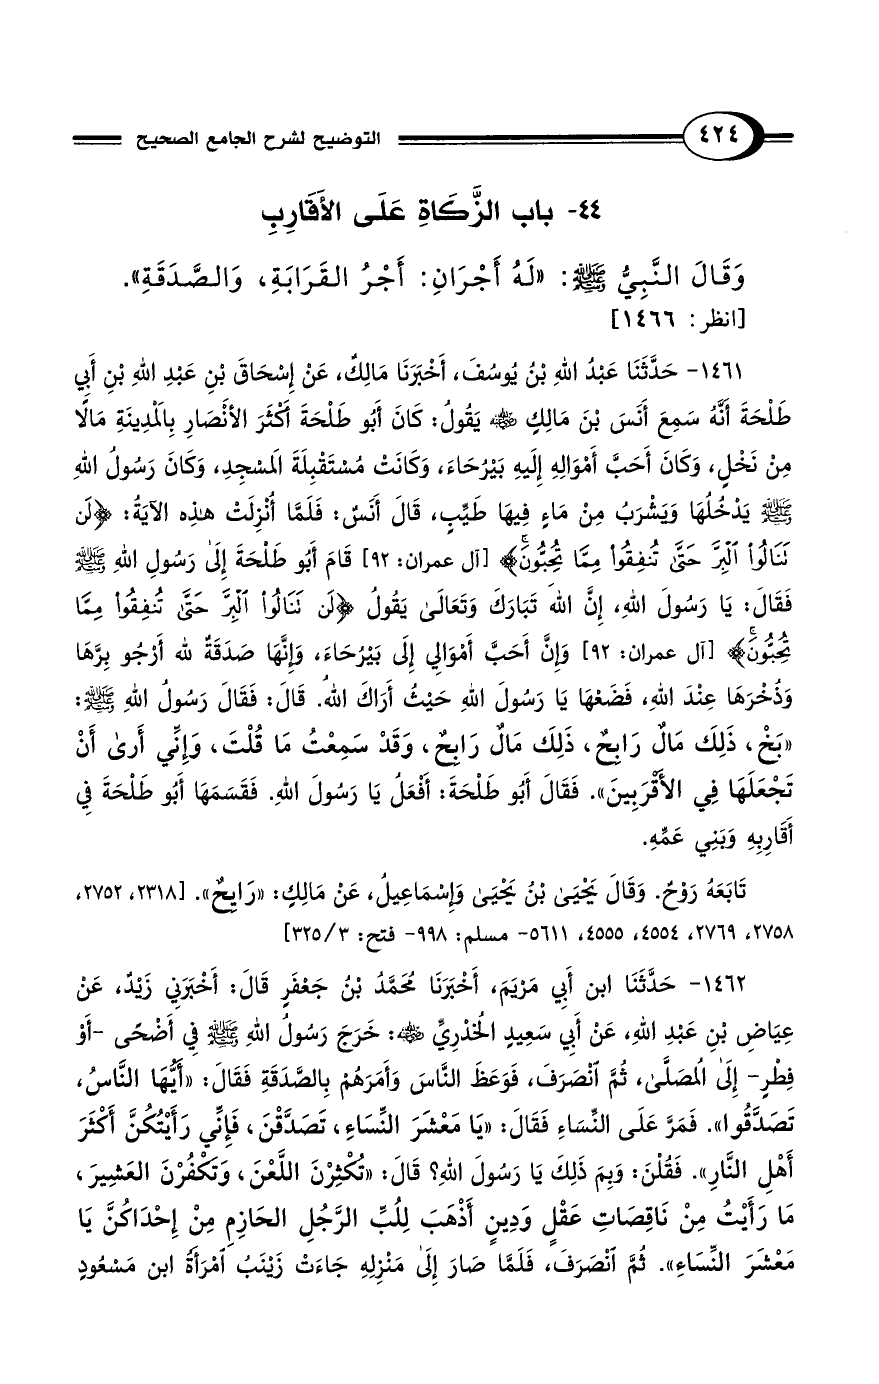 ٤٢٤ التوضيح لشرح الجامع الصحيح
٤٤- باب الزَّكَاةِ عَلَى الأَقَارِبِ
وَقَالَ النَّبِيُّ ﷺ: «لَهُ أَجْرَانِ: أَجْرُ القَرَابَةِ، وَالصَّدَقَةِ».
[انظر: ١٤٦٦]
١٤٦١- حَدَّثَنَا عَبْدُ اللهِ بْنُ يُوسُفَ، أَخْبَرَنَا مَالِكٌ، عَنْ إِسْحَاقَ بْنِ عَبْدِ اللهِ بْنِ أَبِي
طَلْحَةَ أَنَّهُ سَمِعَ أَنَسَ بْنَ مَالِكٍ ﷺ يَقُولُ: كَانَ أَبُو طَلْحَةَ أَكْثَرَ الأَنْصَارِ بِالْمَدِينَةِ مَالًا
مِنْ نَخْلٍ، وَكَانَ أَحَبَّ أَمْوَالِهِ إِلَيهِ بَيْرُحَاءَ، وَكَانَتْ مُسْتَقْبِلَةَ المَسْجِدِ، وَكَانَ رَسُولُ اللهِ
ﷺ يَدْخُلُهَا وَيَشْرَبُ مِنْ مَاءٍ فِيهَا طَيِّبٍ، قَالَ أَنَسٌ: فَلَمَّا أُنْزِلَتْ هٰذِه الآيَةُ: ﴿لَن
نَنَالُواْ ٱلۡبِرَّ حَتَّىٰ تُنفِقُواْ مِمَّا تُحِبُّونَۚ﴾ [آل عمران: ٩٢] قَامَ أَبُو طَلْحَةَ إِلَىٰ رَسُولِ اللهِ ﷺ
فَقَالَ: يَا رَسُولَ اللهِ، إِنَّ اللهَ تَبَارَكَ وَتَعَالَىٰ يَقُولُ ﴿لَن نَنَالُواْ ٱلۡبِرَّ حَتَّىٰ تُنفِقُواْ مِمَّا
تُحِبُّونَۚ﴾ [آل عمران: ٩٢] وَإِنَّ أَحَبَّ أَمْوَالِي إِلَى بَيْرُحَاءَ، وَإِنَّهَا صَدَقَةٌ لله أَرْجُو بِرَّهَا
وَذُخْرَهَا عِنْدَ اللهِ، فَضَعْهَا يَا رَسُولَ اللهِ حَيْثُ أَرَاكَ اللهُ. قَالَ: فَقَالَ رَسُولُ اللهِ ﷺ:
«بَخْ، ذَلِكَ مَالٌ رَابِحٌ، ذَلِكَ مَالٌ رَابِحٌ، وَقَدْ سَمِعْتُ مَا قُلْتَ، وَإِنِّي أَرىٰ أَنْ
تَجْعَلَهَا فِي الأَقْرَبِينَ». فَقَالَ أَبُو طَلْحَةَ: أَفْعَلُ يَا رَسُولَ اللهِ. فَقَسَمَهَا أَبُو طَلْحَةَ فِي
أَقَارِبِهِ وَبَنِي عَمِّهِ.
تَابَعَهُ رَوْحٌ. وَقَالَ يَحْيَىٰ بْنُ يَحْيَىٰ وَإِسْمَاعِيلُ، عَنْ مَالِكٍ: «رَايِحٌ». [٢٣١٨، ٢٧٥٢،
٢٧٥٨، ٢٧٦٩، ٤٥٥٤، ٤٥٥٥، ٥٦١١- مسلم: ٩٩٨- فتح: ٣/ ٣٢٥]
١٤٦٢- حَدَّثَنَا ابن أَبِي مَرْيَمَ، أَخْبَرَنَا مُحَمَّدُ بْنُ جَعْفَرٍ قَالَ: أَخْبَرَنِي زَيْدٌ، عَنْ
عِيَاضِ بْنِ عَبْدِ اللهِ، عَنْ أَبِي سَعِيدٍ الخُدْرِيِّ: خَرَجَ رَسُولُ اللهِ ﷺ فِي أَضْحًى -أَوْ
فِطْرٍ- إِلَىٰ المُصَلَّىٰ، ثُمَّ ٱنْصَرَفَ، فَوَعَظَ النَّاسَ وَأَمَرَهُمْ بِالصَّدَقَةِ فَقَالَ: «أَيُّهَا النَّاسُ،
تَصَدَّقُوا». فَمَرَّ عَلَى النِّسَاءِ فَقَالَ: «يَا مَعْشَرَ النِّسَاءِ، تَصَدَّقْنَ، فَإِنِّي رَأَيْتُكُنَّ أَكْثَرَ
أَهْلِ النَّارِ». فَقُلْنَ: وَبِمَ ذَلِكَ يَا رَسُولَ اللهِ؟ قَالَ: «تُكْثِرْنَ اللَّعْنَ، وَتَكْفُرْنَ العَشِيرَ،
مَا رَأَيْتُ مِنْ نَاقِصَاتِ عَقْلٍ وَدِينٍ أَذْهَبَ لِلُبِّ الرَّجُلِ الحَازِمِ مِنْ إِحْدَاكُنَّ يَا
مَعْشَرَ النِّسَاءِ». ثُمَّ ٱنْصَرَفَ، فَلَمَّا صَارَ إِلَىٰ مَنْزِلِهِ جَاءَتْ زَيْنَبُ ٱمْرَأَةُ ابن مَسْعُودٍ